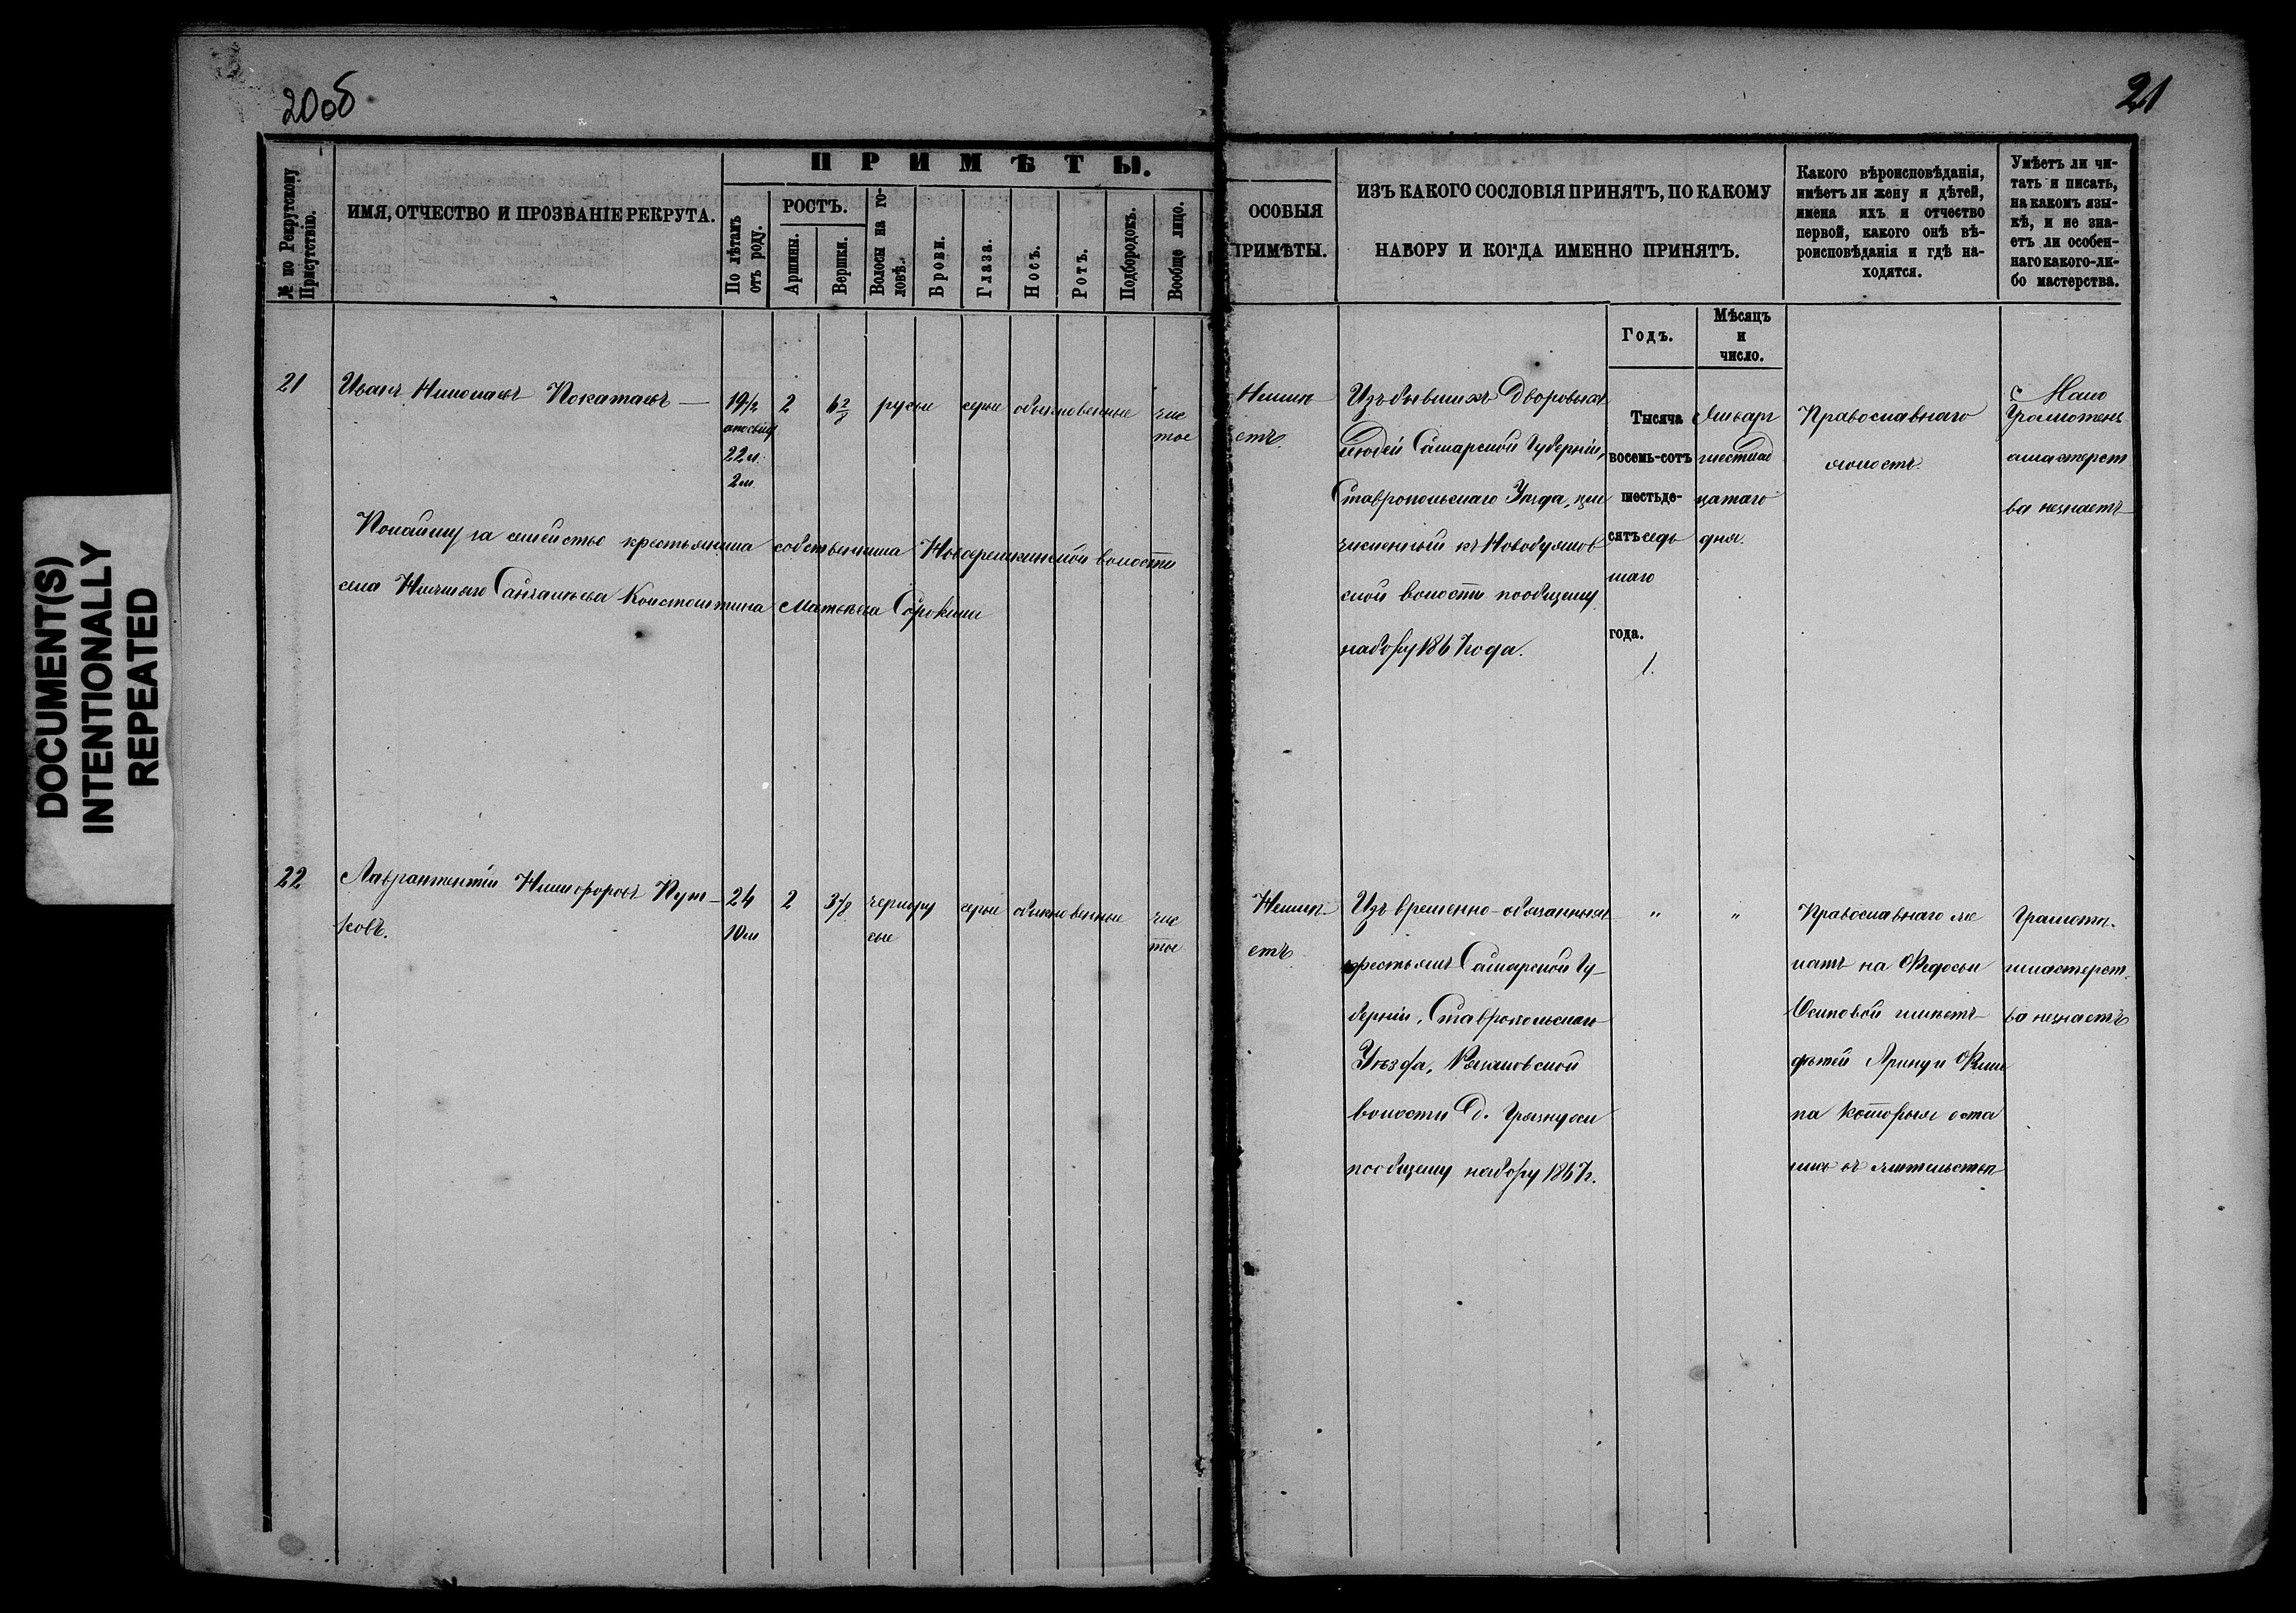 20об
21
DOCUMENT(S)
INTENTIONALLY
REPEATED
№ по Рекрутскому
Присутствію.
ИМЯ, ОТЧЕСТВО И ПРОЗВАНІЕ РЕКРУТА.
ПРИМѢТЫ.
По лѣтамъ
отъ роду.
РОСТЪ.
Аршины.
Вершки.
Волосы на го-
ловѣ.
Брови.
Глаза.
Носъ.
Ротъ.
Подбородокъ.
Вообще лицо.
ОСОБЫЯ
ПРИМѢТЫ.
ИЗЪ КАКОГО СОСЛОВІЯ ПРИНЯТЪ, ПО КАКОМУ
НАБОРУ И КОГДА ИМЕННО ПРИНЯТЪ.
Годъ.
Мѣсяцъ
и
число.
Какого вѣроисповѣданія,
имѣетъ ли жену и дѣтей,
имена ихъ и отчество
первой, какого онѣ вѣ-
роисповѣданія и гдѣ на-
ходятся.
Умѣетъ ли чи-
тать и писать,
на какомъ язы-
кѣ, и не зна-
етъ ли особен-
наго какого-ли-
бо мастерства.
21
Иванъ Николаевъ Покатаевъ —
19 1/2
22 л.
2 м.
2
6 2/8
русые
серые
обыкновенные
чис
тое
По найму за семейство крестьянина собственника Новосремканской волости
села Нижняго Санчалѣева Константина Матвѣева Сорокина
Неимѣ
етъ.
Изъ бывшихъ Дворовыхъ
людей Самарской Губерніи,
Ставропольскаго Уѣзда, при
численный къ Новобуянов
ской волости пообщему
набору 1867 года.
Тысяча
восемь-сотъ
шестьде-
сятъ седь
маго
года.
Января
шестнад
цатаго
дня.
Православнаго
холостъ.
Мало
Грамотенъ
амастерст
ва незнаетъ
22
Лаврантентій Никифоровъ Пуж-
ковъ.
24
10 м
2
3 7/8
чернору
сые
серые
обыкновенные
чис
тое
Неимѣ-
етъ.
Изъ временно-обязанныхъ
крестьянъ Самарской Гу-
берніи, Ставропольскаго
Уѣзда,
волости Д. Грязнухи
пообщему набору 1867 г.
"
"
Православнаго же
натъ на Ѳедосьи
Осиповой имѣетъ
дѣтей Арину и Фили
па которыя оста
лись въ жительствѣ
Грамотн.
имастерст.
ва незнаетъ